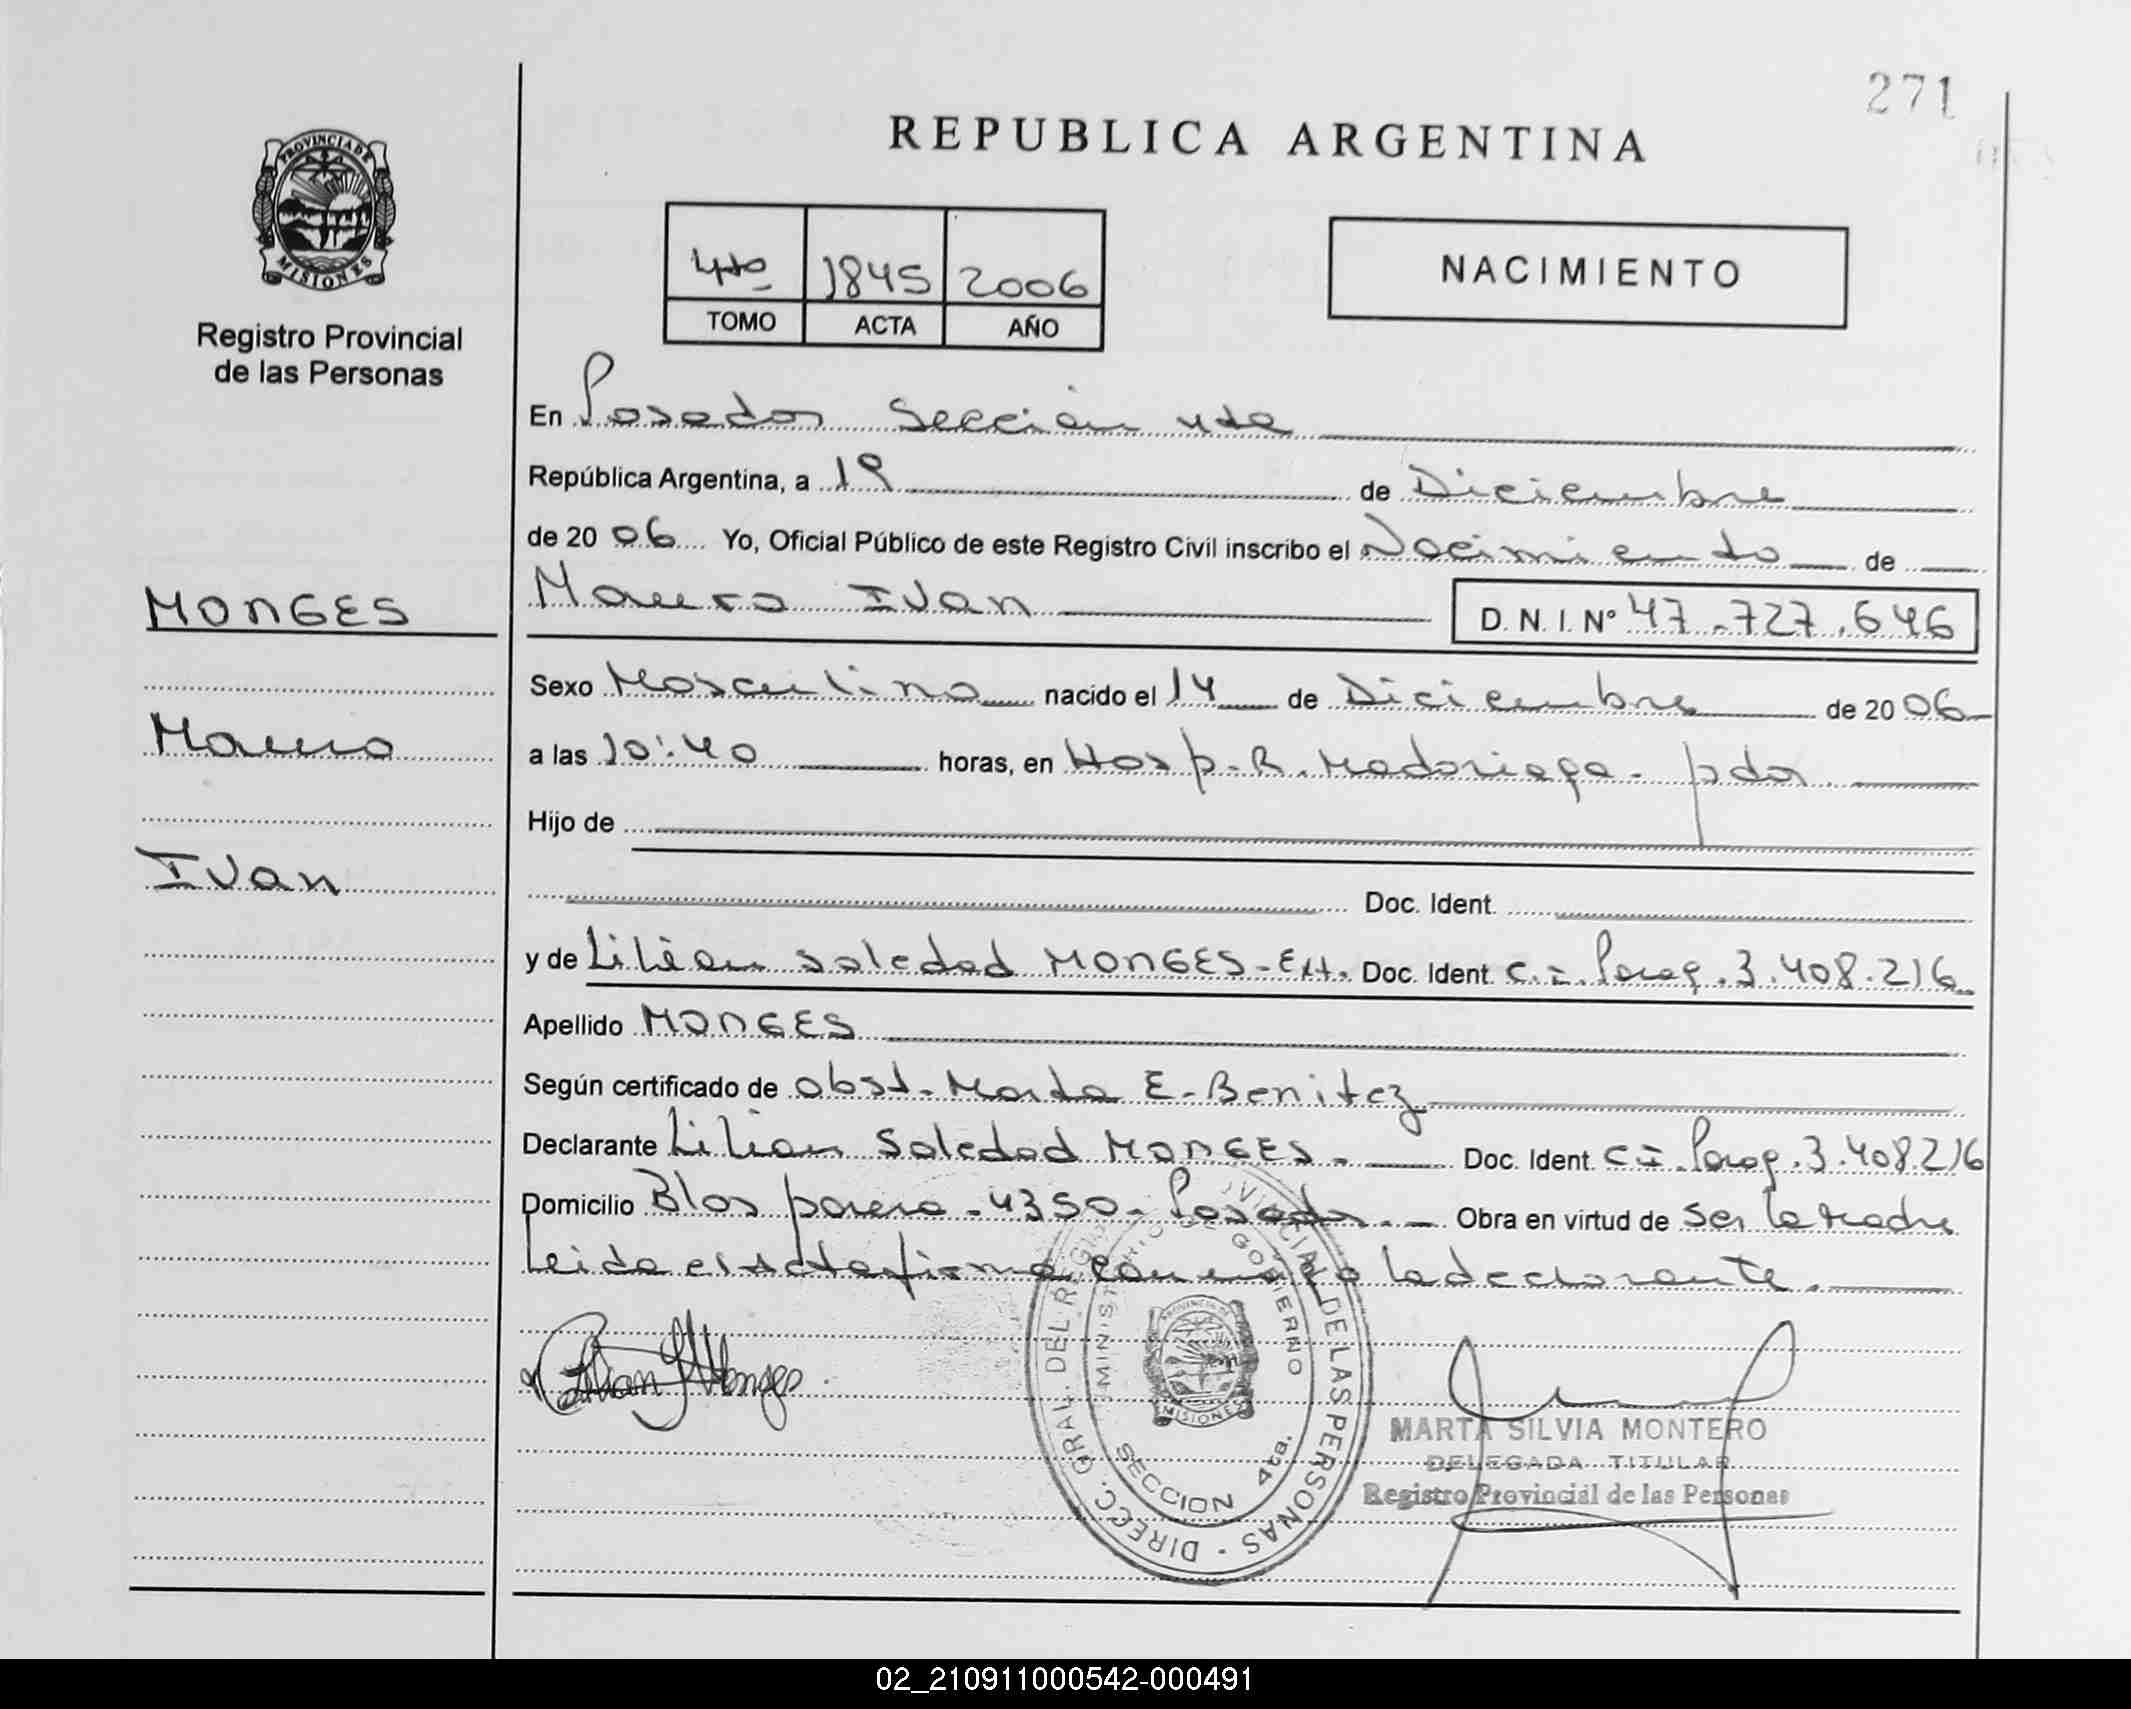 271
REPUBLICA ARGENTINA
PROVINCIA DE MISIONES
Registro Provincial
de las Personas
4to 1845 2006
TOMO ACTA AÑO
NACIMIENTO
En Posadas Sección 4ta
República Argentina, a 19 de Diciembre
de 2006 Yo, Oficial Público de este Registro Civil inscribo el Nacimiento de
MONGES
Mauro Ivan D.N.I. Nº 47.727.646
Sexo Masculino nacido el 14 de Diciembre de 2006
Mauro
a las 10:40 horas, en Hosp. R. Madariaga - pdas
Hijo de
Ivan
Doc. Ident.
y de Lilian Soledad MONGES - Ext. Doc. Ident. C.I. Parag. 3.408.216
Apellido MONGES
Según certificado de obst. Marta E. Benitez
Declarante Lilian Soledad MONGES. Doc. Ident. CI. Parag. 3.408.216
Domicilio Blas parera - 4350 - Posadas. Obra en virtud de ser la madre
Leida el acta firma conmigo la declarante.
Lilian S Monges
DIRECC. GRAL. DEL REGISTRO PROVINCIAL DE LAS PERSONAS -
MINISTERIO DE GOBIERNO
PROVINCIA DE MISIONES
SECCION 4ta.
MARTA SILVIA MONTERO
DELEGADA TITULAR
Registro Provincial de las Personas
02_210911000542-000491